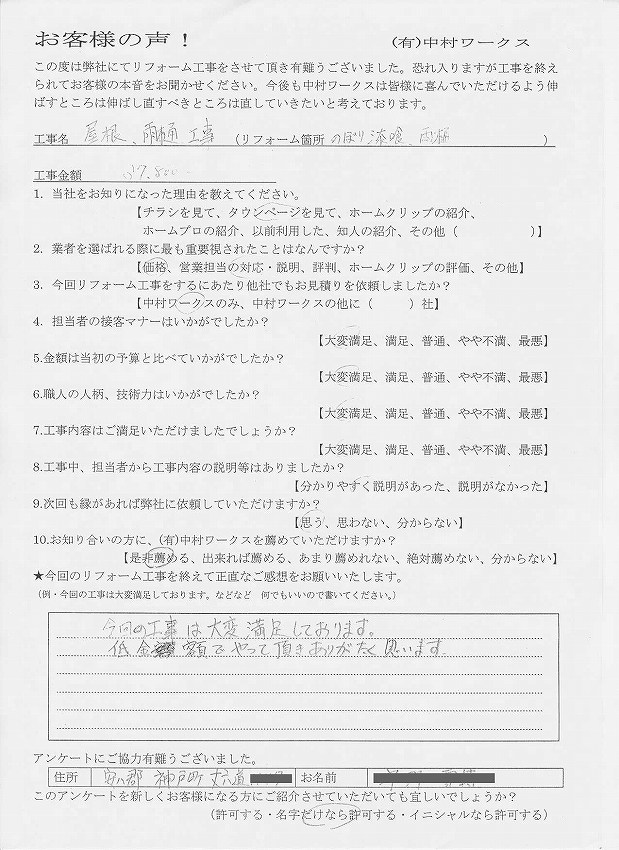 お客様の声！ (有)中村ワークス
この度は弊社にてリフォーム工事をさせて頂き有難うございました。恐れ入りますが工事を終え
られてお客様の本音をお聞かせください。今後も中村ワークスは皆様に喜んでいただけるよう伸
ばすところは伸ばし直すべきところは直していきたいと考えております。
工事名 屋根、雨樋 工事 (リフォーム箇所 のぼり漆喰、雨樋 )
工事金額 37,800
1. 当社をお知りになった理由を教えてください。
【チラシを見て、タウンページを見て、ホームクリップの紹介、
ホームプロの紹介、以前利用した、知人の紹介、その他（ ）】
2. 業者を選ばれる際に最も重要視されたことはなんですか？
【価格、営業担当の対応・説明、評判、ホームクリップの評価、その他】
3. 今回リフォーム工事をするにあたり他社でもお見積りを依頼しましたか？
【中村ワークスのみ、中村ワークスの他に（ ）社】
4. 担当者の接客マナーはいかがでしたか？
【大変満足、満足、普通、やや不満、最悪】
5.金額は当初の予算と比べていかがでしたか？
【大変満足、満足、普通、やや不満、最悪】
6.職人の人柄、技術力はいかがでしたか？
【大変満足、満足、普通、やや不満、最悪】
7.工事内容はご満足いただけましたでしょうか？
【大変満足、満足、普通、やや不満、最悪】
8.工事中、担当者から工事内容の説明等はありましたか？
【分かりやすく説明があった、説明がなかった】
9.次回も縁があれば弊社に依頼していただけますか？
【思う、思わない、分からない】
10.お知り合いの方に、(有)中村ワークスを薦めていただけますか？
【是非薦める、出来れば薦める、あまり薦めれない、絶対薦めない、分からない】
★今回のリフォーム工事を終えて正直なご感想をお願いいたします。
（例・今回の工事は大変満足しております。などなど 何でもいいので書いてください。）
今回の工事は大変満足しております。
低金額でやって頂きありがたく思います
アンケートにご協力有難うございました。
住所 安八郡 神戸町 丈六道 お名前
このアンケートを新しくお客様になる方にご紹介させていただいても宜しいでしょうか？
（許可する・名字だけなら許可する・イニシャルなら許可する）